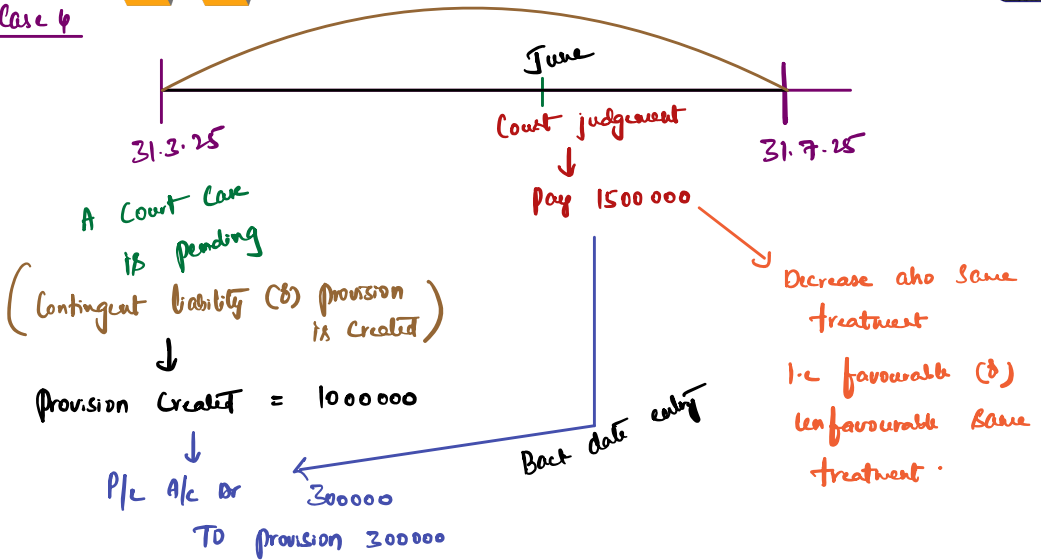 Case 6
June
31.3.25
Court judgement
31.7.25
Pay 1500 000
A Court Case
is pending
(Contingent liability (or) provision
is created)
Provision Created = 1000000
P/L A/c Dr 300000
TO provision 300000
Back date entry
Decrease also Same
treatment
I.e favourable (or)
Unfavourable Same
treatment.